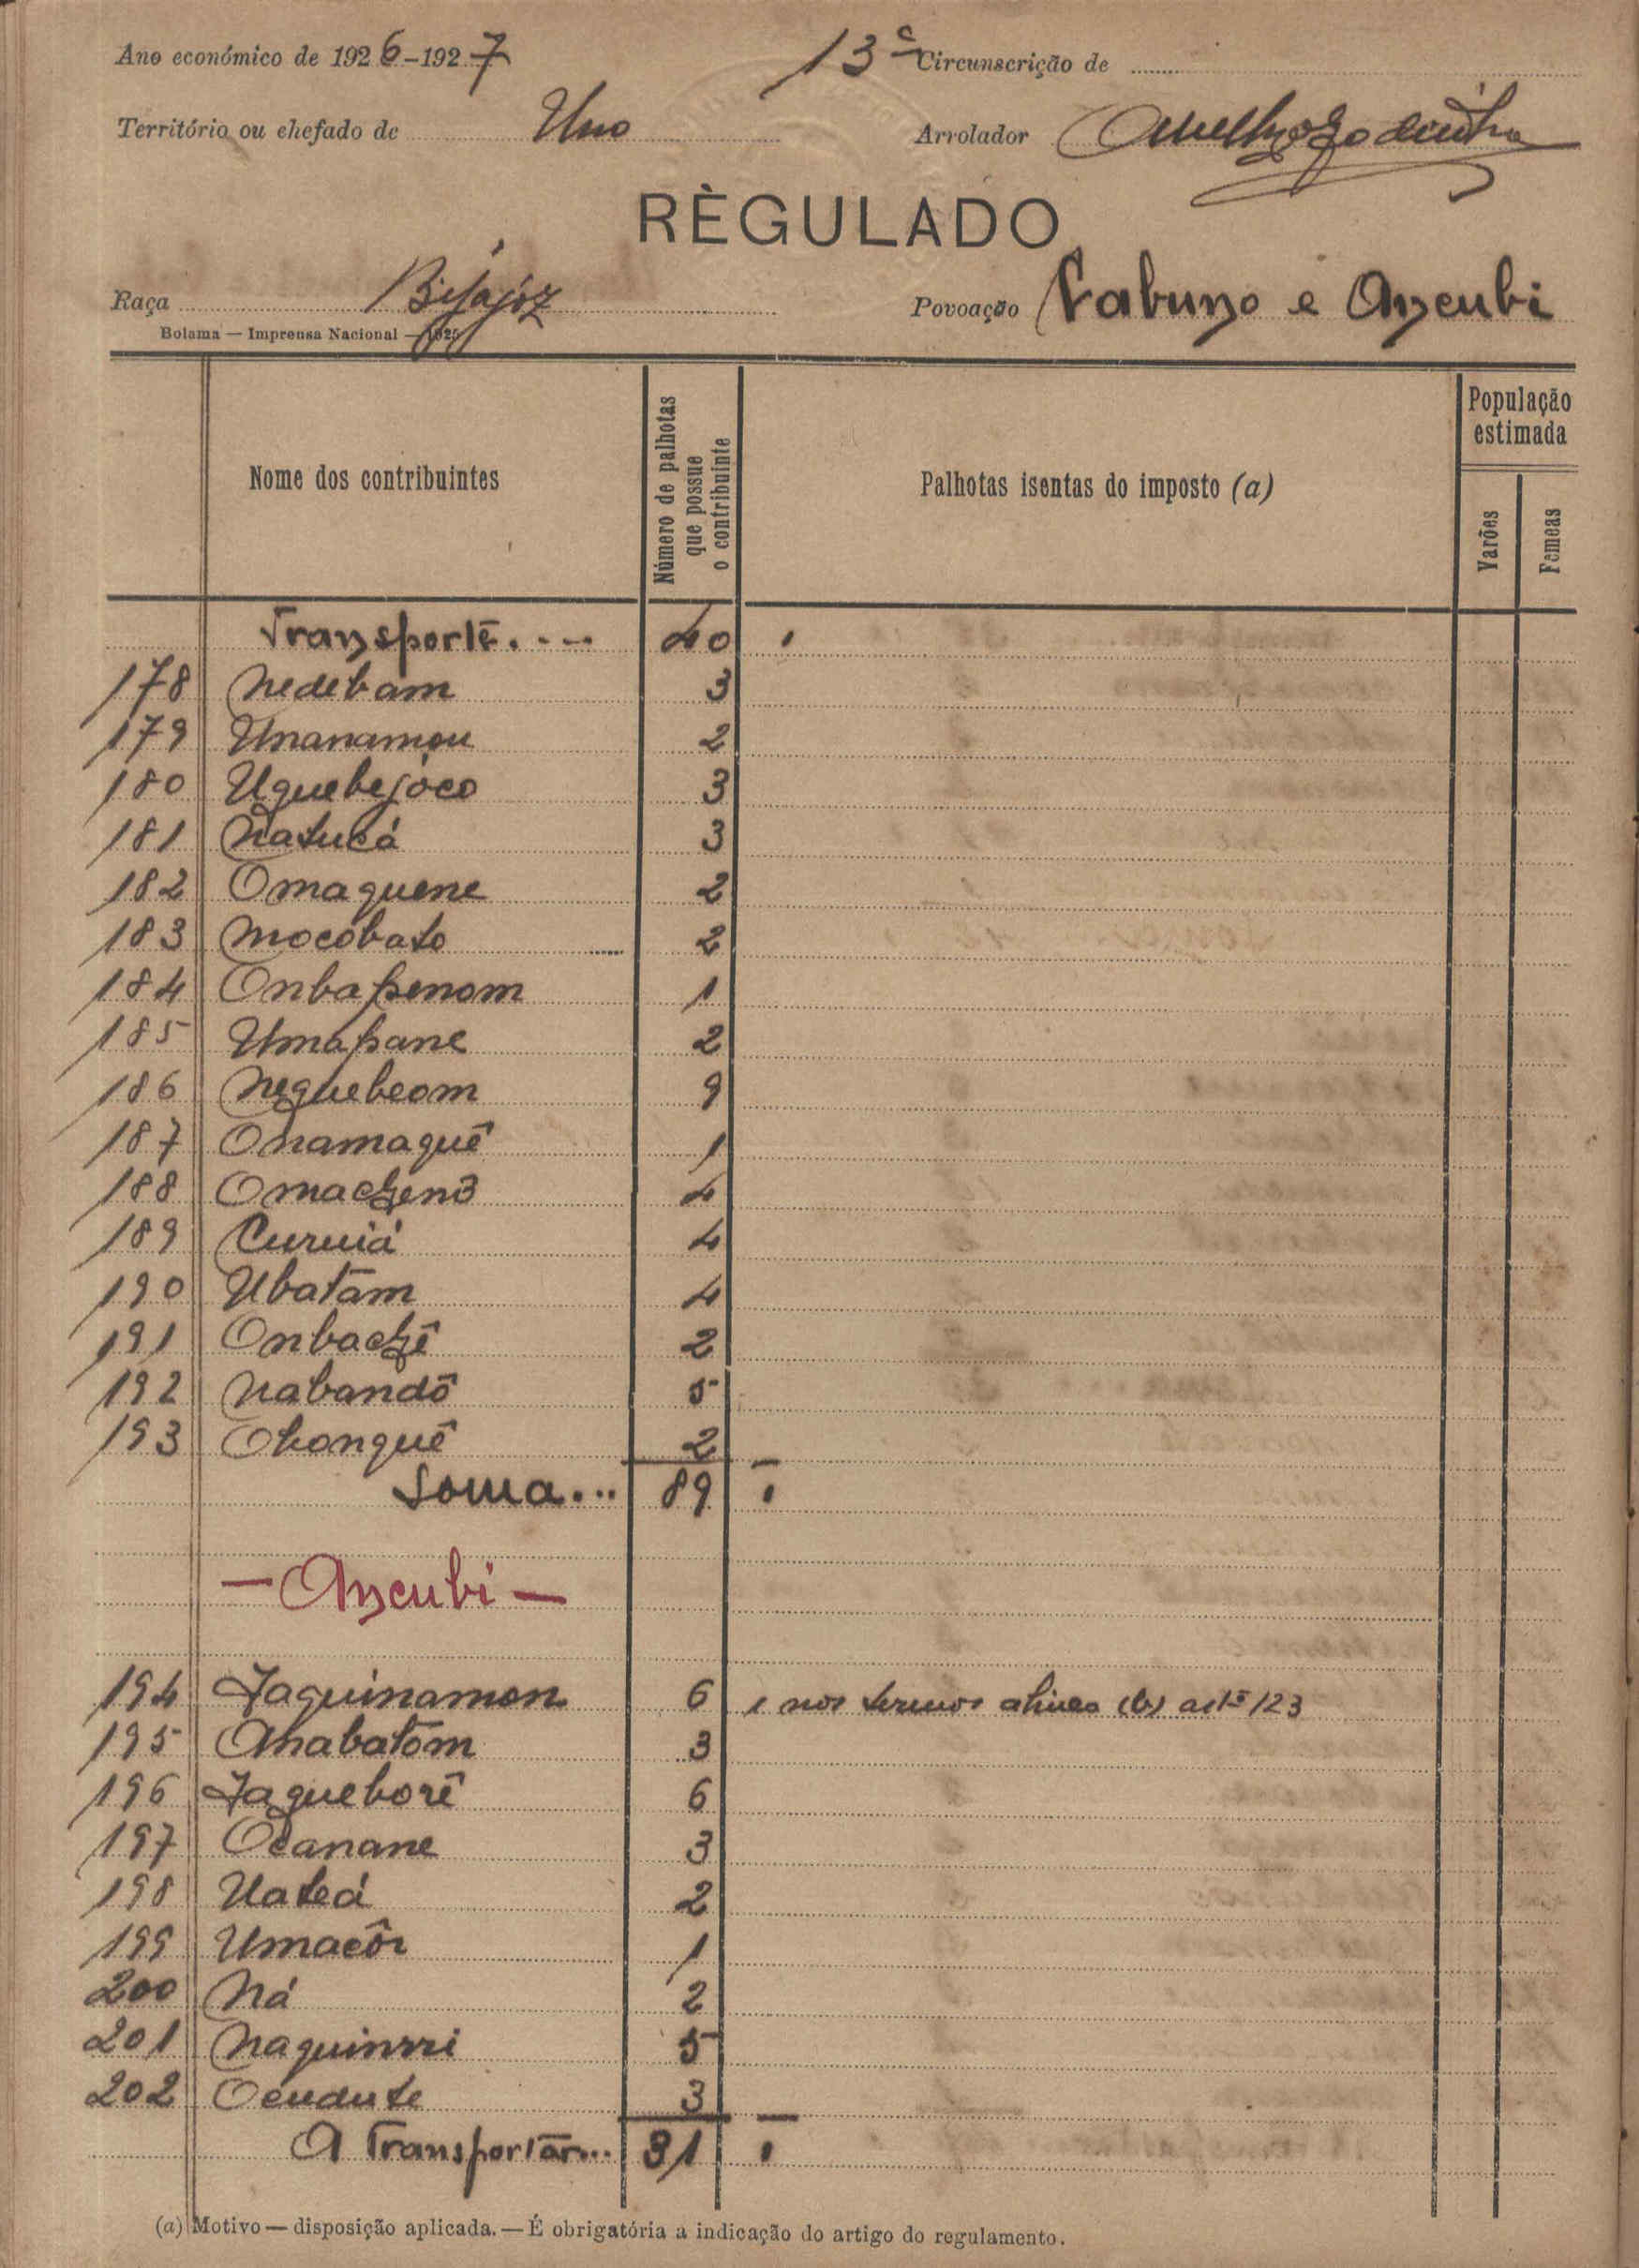 Ano económico de 1926-1927
13ª Circunscrição de
Território ou chefado de Uno
Arrolador
RÈGULADO
Raça Bijajóz
Povoação Cabuno e Ancubi
Bolama — Imprensa Nacional — 1925
Nome dos contribuintes
Número de palhotas que possue o contribuinte
Palhotas isentas do imposto (a)
População estimada
Varões
Femeas
Transporte.... 40 1
178 Nedebam 3
179 Unanamou 2
180 Uquebejóco 3
181 Natucá 3
182 Omaquene 2
183 Mocobato 2
184 Onbapenom 1
185 Umapane 2
186 Nequebeom 9
187 Onamaquê 1
188 4
189 Curuiá 4
190 Ubatam 4
191 Onbachê 2
192 Nabandô 5
193 Obonquê 2
Soma... 89 1
— Ancubi —
194 Jaquinamon 6 1 nos termos alinea (b) artº 123
195 Anabatom 3
196 Jaqueborê 6
197 Ocanane 3
198 Uateá 2
199 Umacôr 1
200 Ná 2
201 Naquinrri 5
202 Ocudute 3
A Transportar... 31 1
(a) Motivo — disposição aplicada. — É obrigatória a indicação do artigo do regulamento.